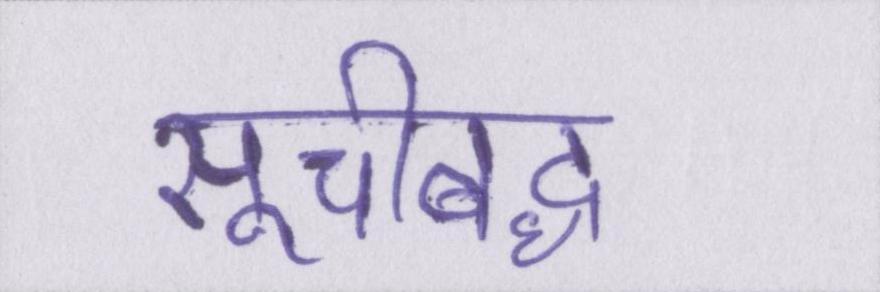 सूचीबद्ध